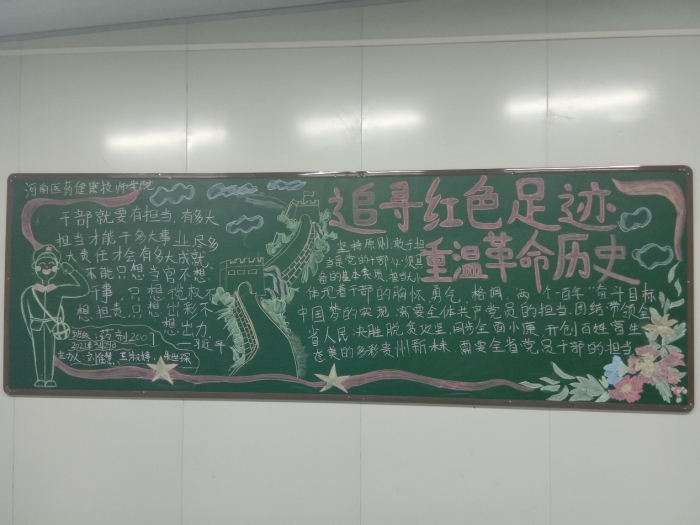 河南医药健康技师学院
干部就要有担当,有多大
担当才能干多大事业,尽多
大责任才会有多大成就,
不能只想当官不想
干事,只想揽权不
想担责,只想出彩不
想出力
——习近平
班级:药剂2001
2021年3月29日
主办人:
追寻红色足迹
重温革命历史
坚持原则、敢于担
当是党的干部必须具
备的基本素质,担当大小
体现着干部的胸怀、勇气、格调,两个一百年奋斗目标
中国梦的实现,需要全体共产党员的担当,团结带领全
省人民决胜脱贫攻坚,同步全面小康,开创百姓富、生
态美的多彩贵州新未来,需要全省党员干部的担当